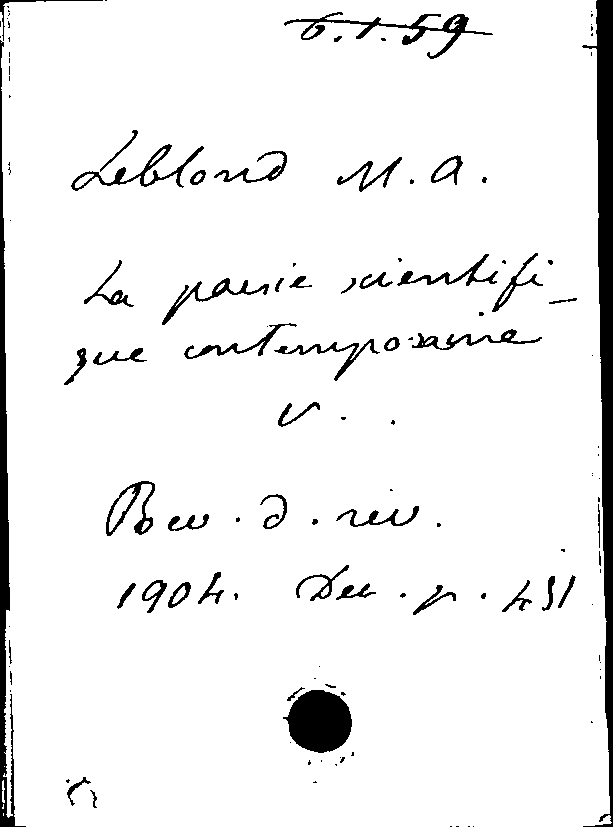 6.1.59
Leblond M. A.
La poesie scientifi_
que contemporaine
V. .
Rev. d. rev.
1904. Dec. p. 431